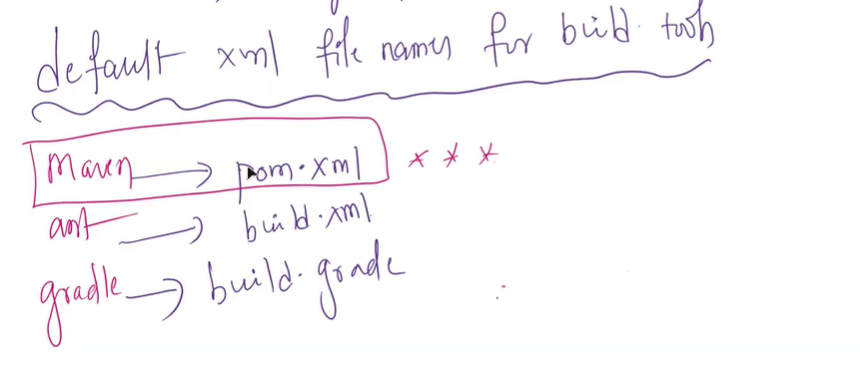 default xml file names for build tools
Maven → pom.xml * * *
ant → build.xml
gradle → build.grade